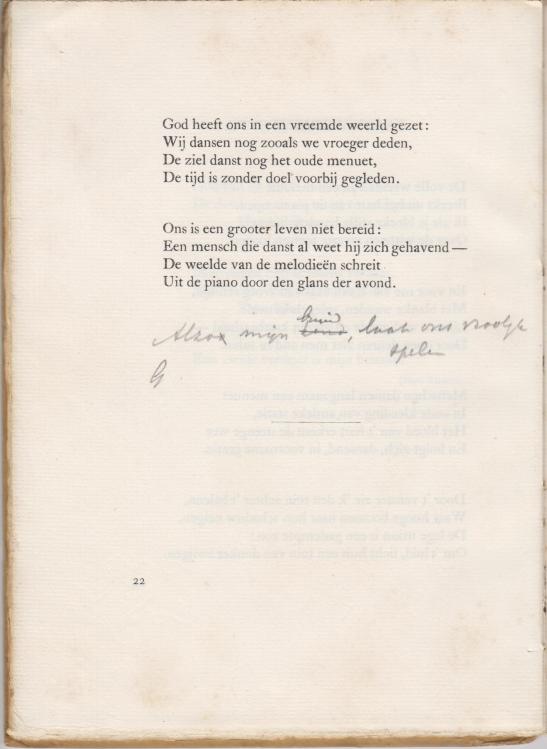 God heeft ons in een vreemde weerld gezet:
Wij dansen nog zooals we vroeger deden,
De ziel danst nog het oude menuet,
De tijd is zonder doel voorbij gegleden.
Ons is een grooter leven niet bereid:
Een mensch die danst al weet hij zich gehavend—
De weelde van de melodieën schreit
Uit de piano door den glans der avond.
mijn , laat ons vroolijk
spelen
G
22